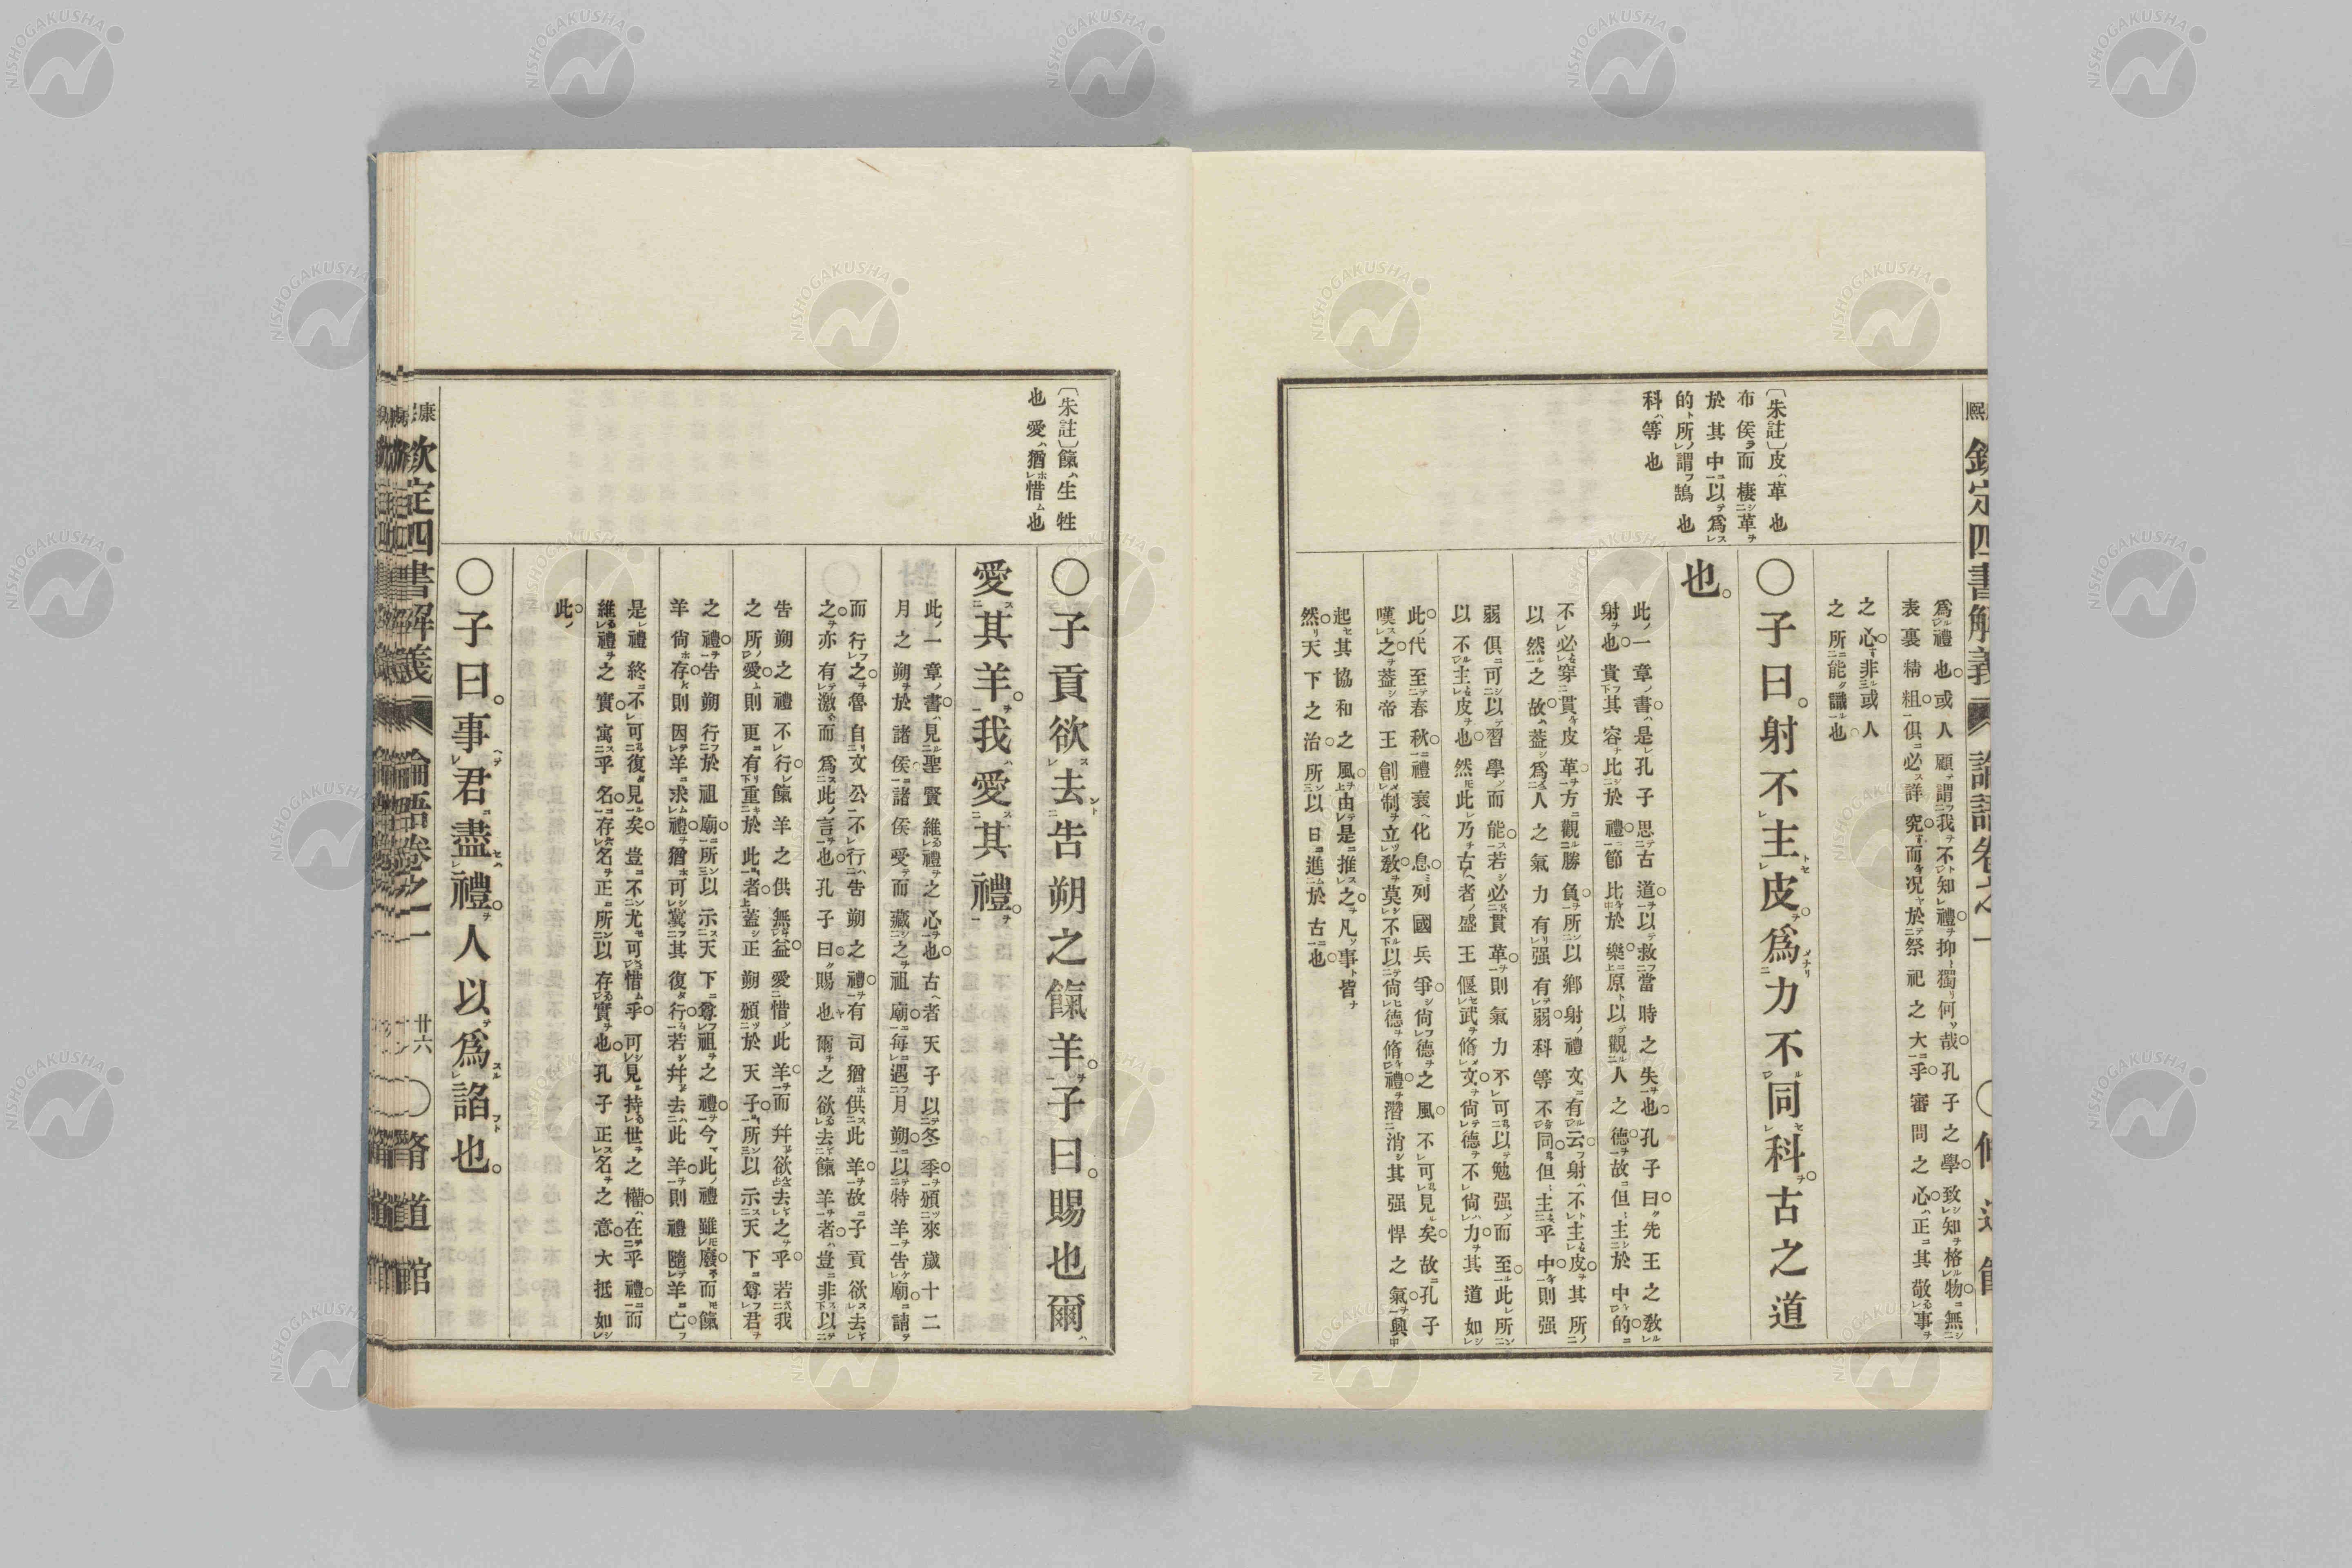 爲禮也或人顧謂我不知禮抑獨何哉孔子之學致知格物無
表裏精粗俱必詳究而况於祭祀之大乎審問之心正其敬事
之心非或人
之所能識也
〔朱註〕皮革也
布侯而棲革
於其中以爲
的所謂鵠也
科等也
〇子曰射不主皮爲力不同科古之道
也
此一章書是孔子思古道以救當時之失也孔子曰先王之敎
射也貴其容比於禮節比於樂原以觀人之德故但主於中的
不必穿貫皮革方觀勝負所以鄉射禮文有云射不主皮其所
以然之故葢爲人之氣力有强有弱科等不同但主乎中則强
弱俱可以習學而能若必貫革則氣力不可以勉强而至此所
以不主皮也然此乃古者盛王偃武脩文尙德不尙力其道如
此代至春秋禮衰化息列國兵爭尙德之風不可見矣故孔子
嘆之葢帝王創制立敎莫不以尙德脩禮潛消其强悍之氣興
起其協和之風由是推之凡事皆
然天下之治所以日進於古也
康熙 欽定四書解義 論語卷之一 脩道館
〔朱註〕餼生牲
也愛猶惜也
〇子貢欲去告朔之餼羊子曰賜也爾
愛其羊我愛其禮
此一章書見聖賢維禮之心也古者天子以冬季頒來歲十二
月之朔於諸侯諸侯受而藏之祖廟每遇月朔以特羊告廟請
而行之魯自文公不行告朔之禮有司猶供此羊故子貢欲去
之亦有激而爲此言也孔子曰賜也爾之欲去餼羊者豈非以
告朔之禮不行餼羊之供無益愛惜此羊而幷欲去之乎若我
之所愛則更有重於此者葢正朔頒於天子所以示天下尊君
之禮告朔行於祖廟所以示天下尊祖之禮今此禮雖廢而餼
羊尙存則因羊求禮猶可冀其復行若幷去此羊則禮隨羊亡
是禮終不可復見矣豈不尤可惜乎可見持世之權在乎禮而
維禮之實寓乎名存名正所以存實也孔子正名之意大抵如
此
〇子曰事君盡禮人以爲諂也
康熙 欽定四書解義 論語卷之一 廿六 〇脩道館